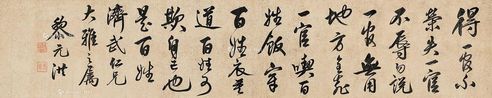 得一官不
榮失一官
不辱勿說
一官無用
地方全靠
一官喫百
姓飯穿
百姓衣莫
道百姓可
欺自己也
是百姓
濟武仁兄
大雅之屬
黎元洪